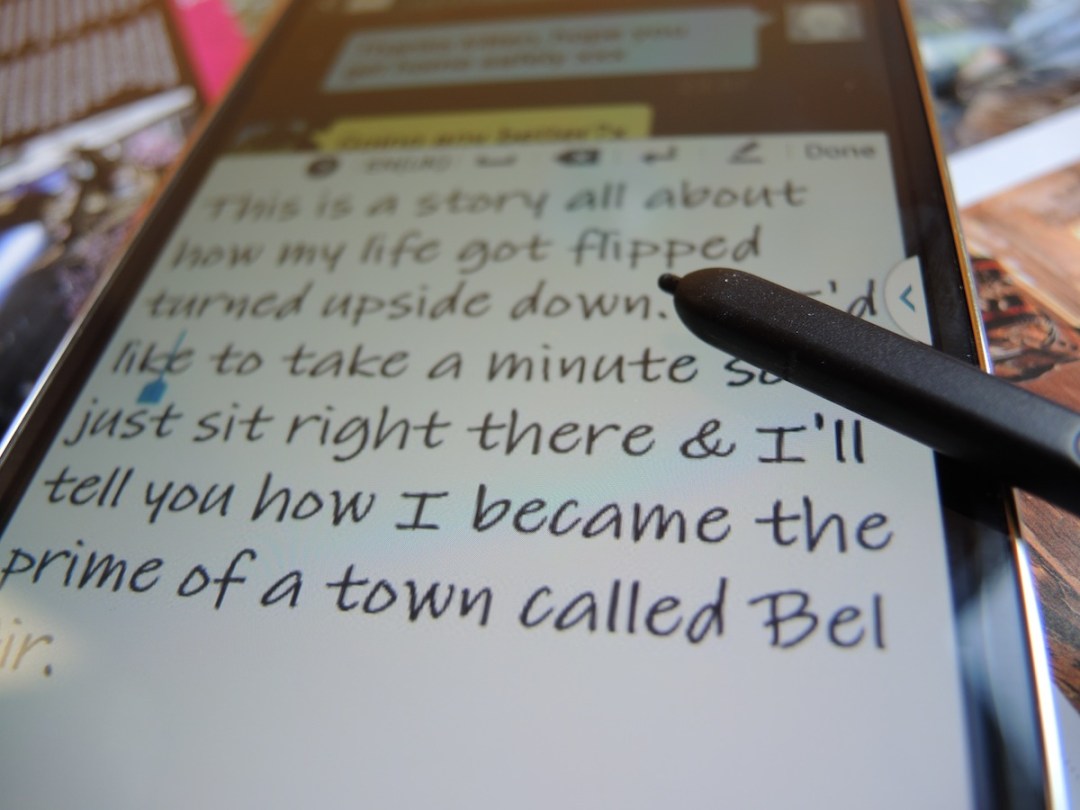 Done
This is a story all about
how my life got flipped
turned upside down. I'd
like to take a minute so
just sit right there & I'll
tell you how I became the
prime of a town called Bel
ir.